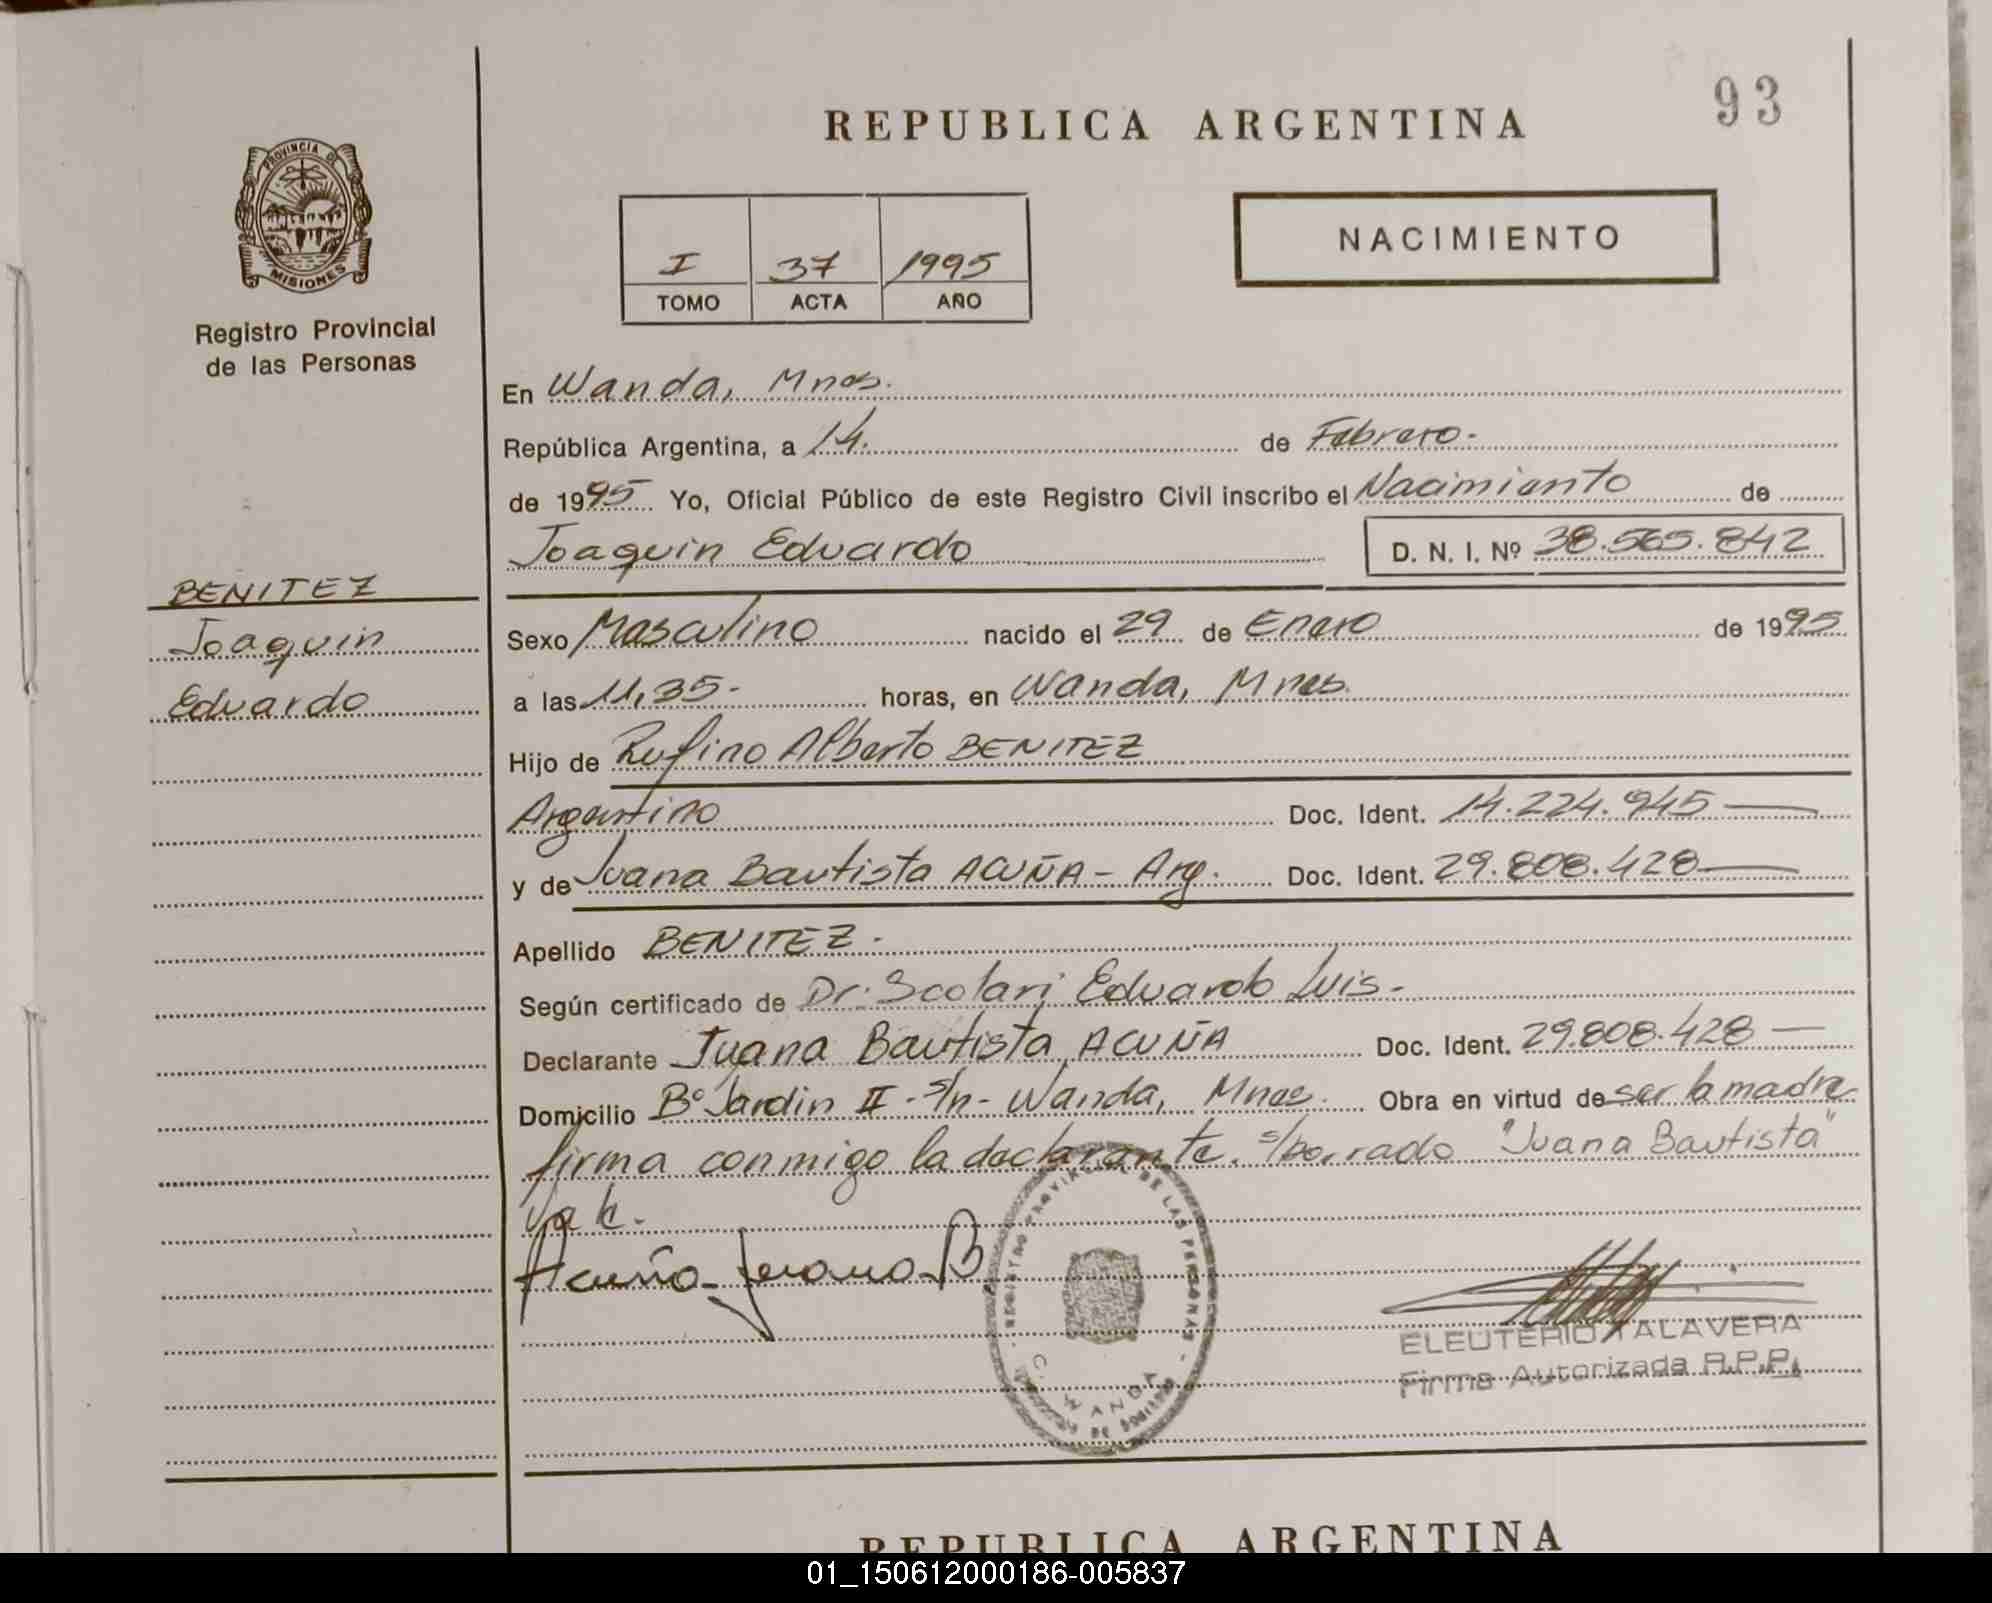 93
REPUBLICA ARGENTINA
PROVINCIA DE
MISIONES
Registro Provincial
de las Personas
I 37 1995
TOMO ACTA AÑO
NACIMIENTO
En Wanda, Mnes.
República Argentina, a 14. de Febrero.-
de 1995 Yo, Oficial Público de este Registro Civil inscribo el Nacimiento de
Joaquin Eduardo D. N. I. Nº 38.565.842
BENITEZ
Joaquin
Eduardo
Sexo Masculino nacido el 29 de Enero de 1995
a las 11,35- horas, en Wanda, Mnes.
Hijo de Rufino Alberto BENITEZ
Argentino Doc. Ident. 14.224.945
y de Juana Bautista ACUÑA - Arg. Doc. Ident. 29.808.428
Apellido BENITEZ.
Según certificado de Dr. Scolari Eduardo Luis.-
Declarante Juana Bautista ACUÑA Doc. Ident. 29.808.428
Domicilio Bº Jardin II - s/n - Wanda, Mnes. Obra en virtud de ser la madre
firma conmigo la declarante. s/borrado "Juana Bautista"
vale.
Acuña Juana B
REGISTRO PROVINCIAL DE LAS PERSONAS
WANDA
ELEUTERIO TALAVERA
Firma Autorizada R.P.P.
REPUBLICA ARGENTINA
01_150612000186-005837